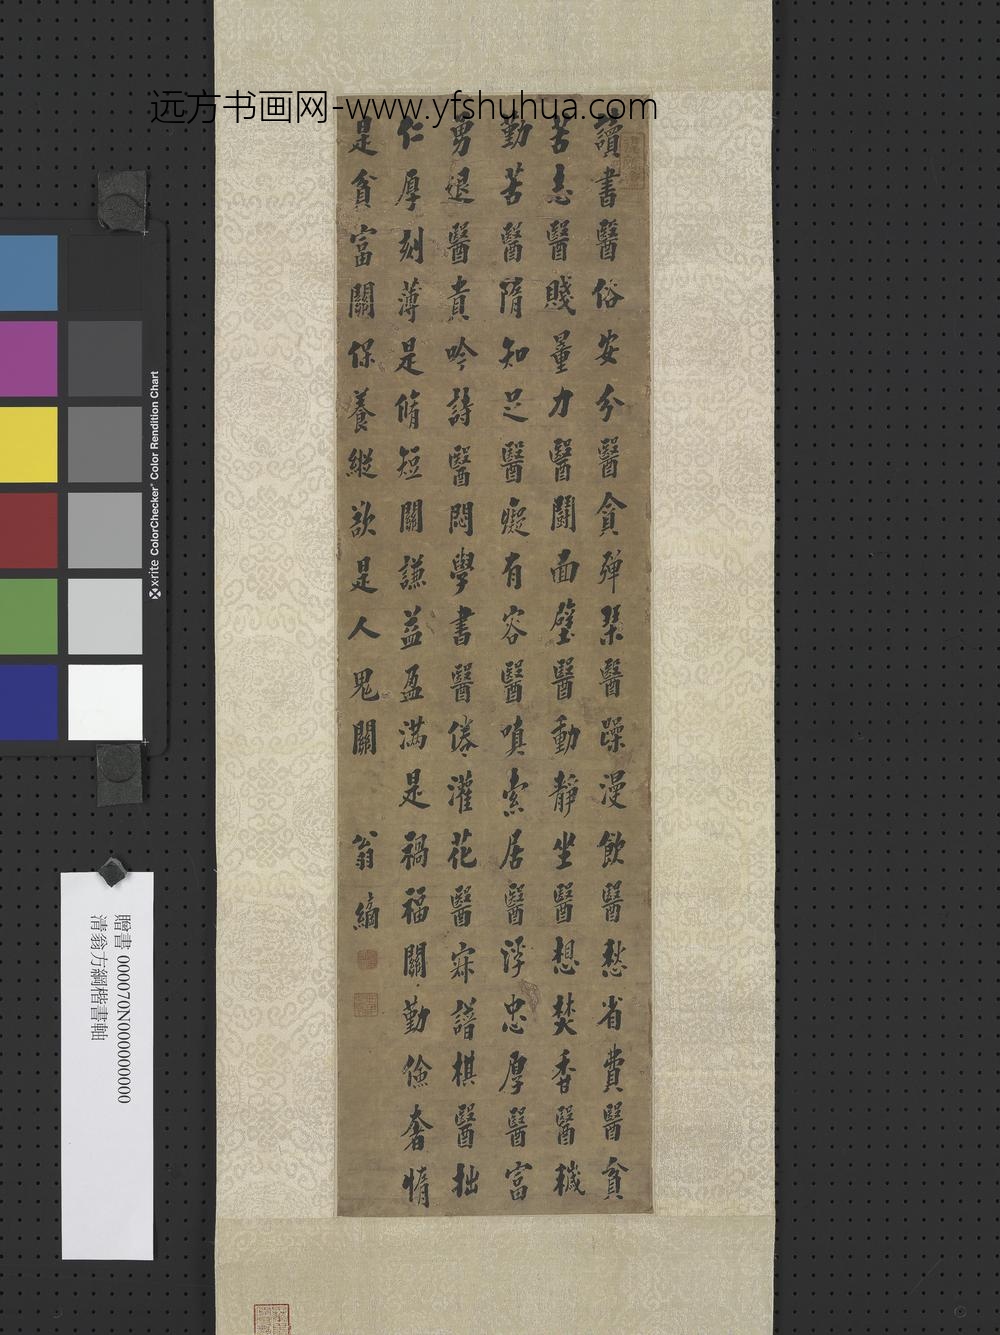 远方书画网-www.yfshuhua.com
讀書醫俗安分醫貪彈琹醫躁漫飲醫愁省費醫貧
苦志醫賤量力醫鬪面壁醫動靜坐醫想焚香醫穢
勤苦醫隋知足醫癡有容醫嗔索居醫浮忠厚醫富
勇退醫貴吟詩醫悶學書醫倦灌花醫寂譜棋醫拙
仁厚刻薄是脩短關謙益盈满是禍福關勤儉奢惰
是貧富關保養縱欲是人鬼關
翁
x·rite ColorChecker Color Rendition Chart
贈書 000070N000000000
清翁方綱楷書軸